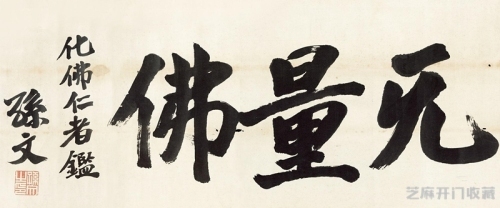 无量佛
化佛仁者鑑
孫文
芝麻开门收藏